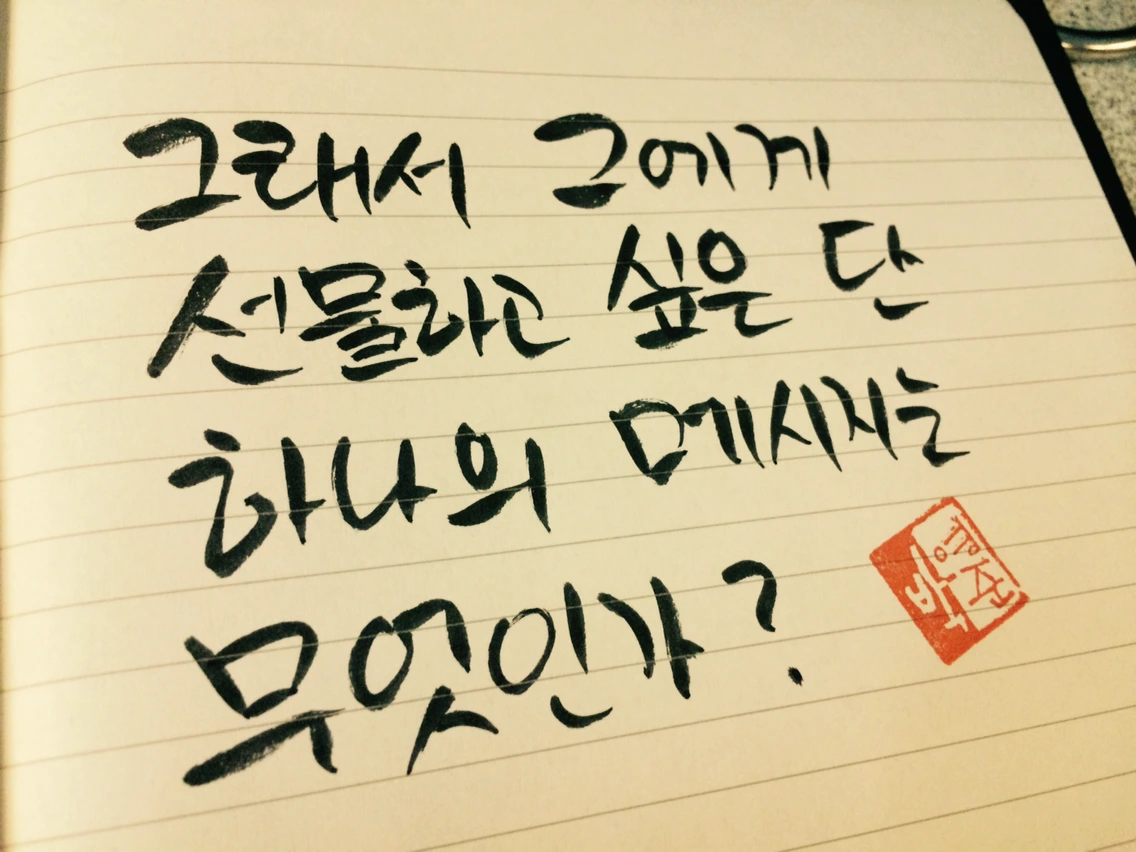 그래서 그에게
선물하고 싶은 단
하나의 메시지는
무엇인가?